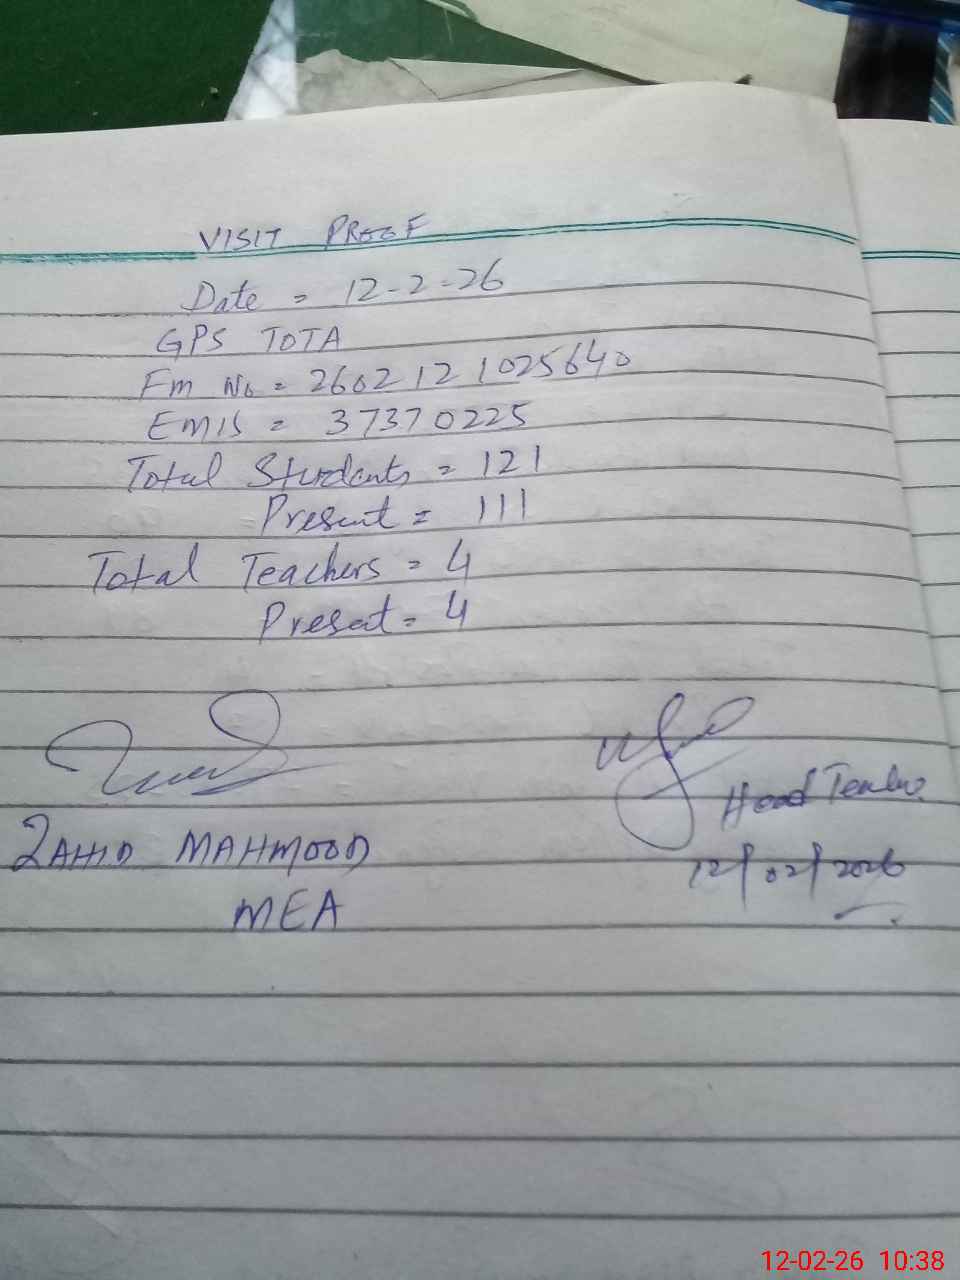 VISIT PROOF
Date = 12-2-26
GPS TOTA
Fm No = 2602121025640
EMIS = 37370225
Total Students = 121
Present = 111
Total Teachers = 4
Present = 4
ZAHID MAHMOOD
MEA
Head Teacher
12/02/2026
12-02-26 10:38